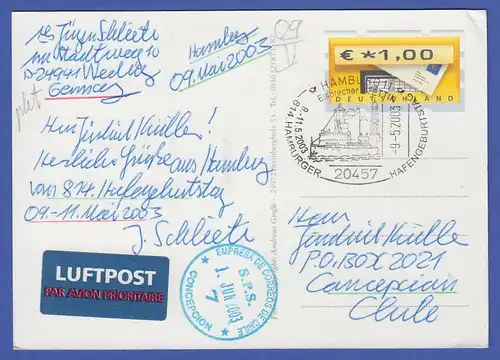 Abs Jürgen Schleete
Im Stadtweg 10
D 24941 Weding
Germany
Hamburg
09. Mai 2003
09
V
Herzliche Grüße aus Hamburg
vom 814. Hafengeburtstag
09.-11. Mai 2003
J. Schleete
LUFTPOST
PAR AVION PRIORITAIRE
EMPRESA DE CORREOS DE CHILE
S.P.S.
1. JUN 2003
7
CONCEPCION
€ *1,00
DEUTSCHLAND
HAMBURG 11
9.-11.5.2003
814. HAMBURGER HAFENGEBURTSTAG
-9.-5.2003
20457
Herrn
P.O.BOX 2021
Concepcion
Chile